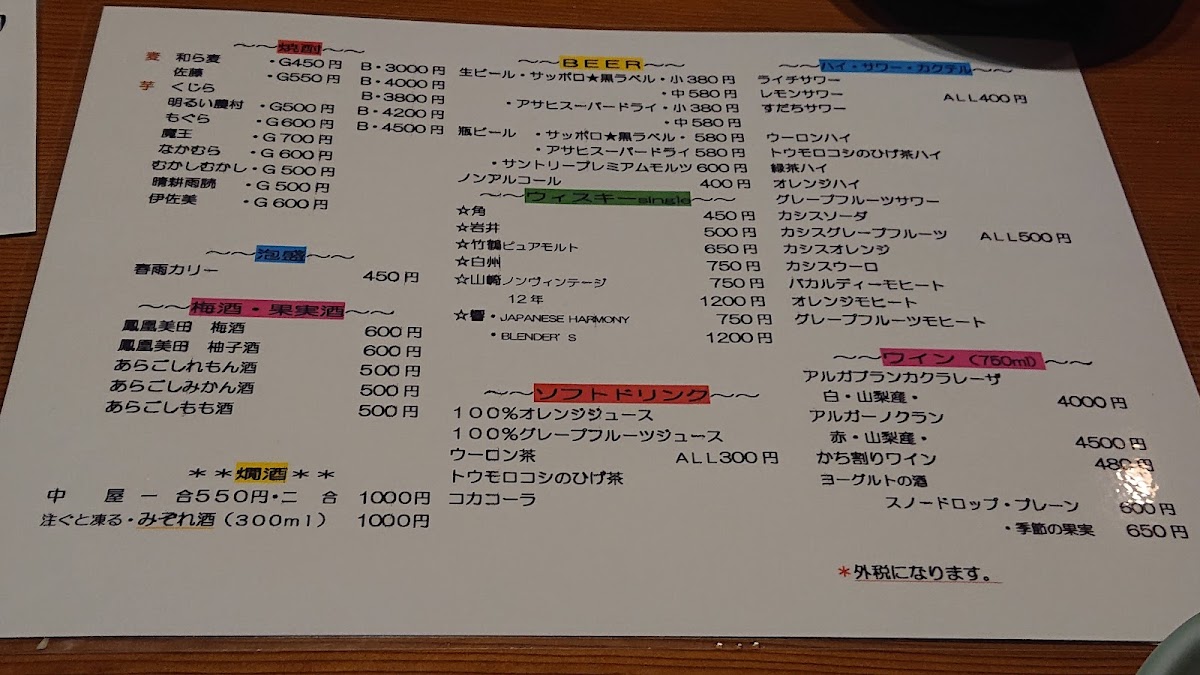 ～～焼酎～～
麦 和ら麦 ・G450円 B・3000円
佐藤 ・G550円 B・4000円
芋 くじら B・3800円
明るい農村 ・G500円 B・4200円
もぐら ・G600円 B・4500円
魔王 ・G700円
なかむら ・G600円
むかしむかし・G500円
晴耕雨読 ・G500円
伊佐美 ・G600円
～～泡盛～～
春雨カリー 450円
～～梅酒・果実酒～～
鳳凰美田 梅酒 600円
鳳凰美田 柚子酒 600円
あらごしれもん酒 500円
あらごしみかん酒 500円
あらごしもも酒 500円
＊＊燗酒＊＊
中 屋 一 合550円・二 合 1000円
注ぐと凍る・みぞれ酒（300ml） 1000円
～～BEER～～
生ビール・サッポロ★黒ラベル・小380円
・中580円
・アサヒスーパードライ・小380円
・中580円
瓶ビール ・サッポロ★黒ラベル・580円
・アサヒスーパードライ580円
・サントリープレミアムモルツ600円
ノンアルコール 400円
～～ウィスキーsingle～～
☆角 450円
☆岩井 500円
☆竹鶴ピュアモルト 650円
☆白州 750円
☆山崎ノンヴィンテージ 750円
12年 1200円
☆響・JAPANESE HARMONY 750円
・BLENDER'S 1200円
～～ソフトドリンク～～
100%オレンジジュース
100%グレープフルーツジュース
ウーロン茶 ALL300円
トウモロコシのひげ茶
コカコーラ
～～ハイ・サワー・カクテル～～
ライチサワー
レモンサワー ALL400円
すだちサワー
ウーロンハイ
トウモロコシのひげ茶ハイ
緑茶ハイ
オレンジハイ
グレープフルーツサワー
カシスソーダ
カシスグレープフルーツ ALL500円
カシスオレンジ
カシスウーロ
バカルディーモヒート
オレンジモヒート
グレープフルーツモヒート
～～ワイン（750ml）～～
アルガブランカクラレーザ
白・山梨産・ 4000円
アルガーノクラン
赤・山梨産・ 4500円
かち割りワイン 480円
ヨーグルトの酒
スノードロップ・プレーン 600円
・季節の果実 650円
＊外税になります。